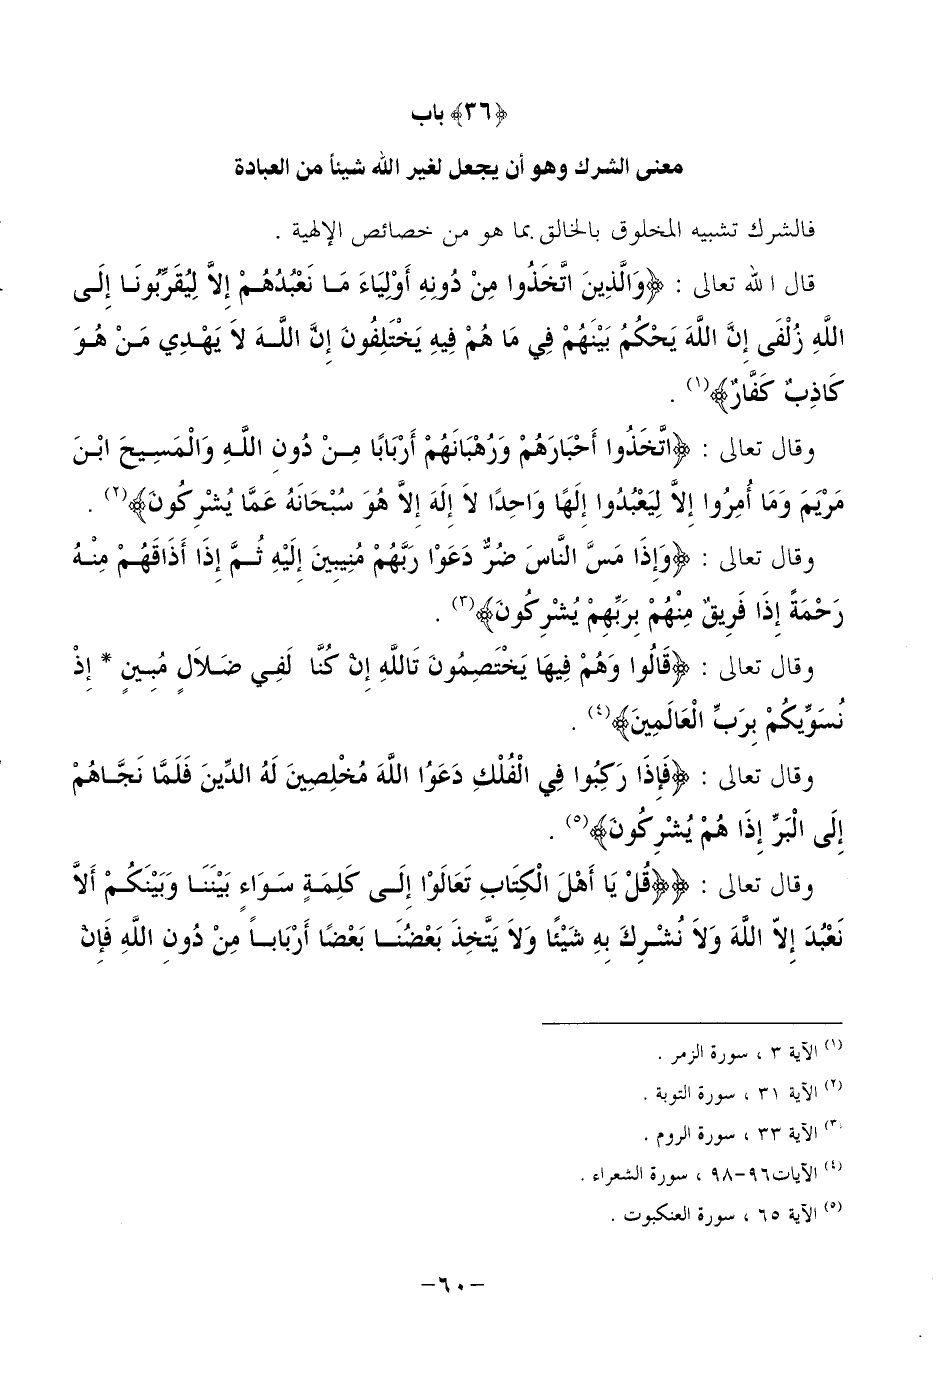 ﴿٣٦﴾ باب
معنى الشرك وهو أن يجعل لغير الله شيئاً من العبادة
فالشرك تشبيه المخلوق بالخالق بما هو من خصائص الإلهية .
قال الله تعالى : ﴿وَالَّذِينَ اتَّخَذُوا مِنْ دُونِهِ أَوْلِيَاءَ مَا نَعْبُدُهُمْ إِلاَّ لِيُقَرِّبُونَا إِلَى
اللَّهِ زُلْفَى إِنَّ اللَّهَ يَحْكُمُ بَيْنَهُمْ فِي مَا هُمْ فِيهِ يَخْتَلِفُونَ إِنَّ اللَّهَ لاَ يَهْدِي مَنْ هُوَ
كَاذِبٌ كَفَّارٌ﴾(١) .
وقال تعالى : ﴿اتَّخَذُوا أَحْبَارَهُمْ وَرُهْبَانَهُمْ أَرْبَابًا مِنْ دُونِ اللَّهِ وَالْمَسِيحَ ابْنَ
مَرْيَمَ وَمَا أُمِرُوا إِلاَّ لِيَعْبُدُوا إِلَهًا وَاحِدًا لاَ إِلَهَ إِلاَّ هُوَ سُبْحَانَهُ عَمَّا يُشْرِكُونَ﴾(٢) .
وقال تعالى : ﴿وَإِذَا مَسَّ النَّاسَ ضُرٌّ دَعَوْا رَبَّهُمْ مُنِيبِينَ إِلَيْهِ ثُمَّ إِذَا أَذَاقَهُمْ مِنْهُ
رَحْمَةً إِذَا فَرِيقٌ مِنْهُمْ بِرَبِّهِمْ يُشْرِكُونَ﴾(٣) .
وقال تعالى : ﴿قَالُوا وَهُمْ فِيهَا يَخْتَصِمُونَ تَاللَّهِ إِنْ كُنَّا لَفِي ضَلاَلٍ مُبِينٍ * إِذْ
نُسَوِّيكُمْ بِرَبِّ الْعَالَمِينَ﴾(٤) .
وقال تعالى : ﴿فَإِذَا رَكِبُوا فِي الْفُلْكِ دَعَوُا اللَّهَ مُخْلِصِينَ لَهُ الدِّينَ فَلَمَّا نَجَّاهُمْ
إِلَى الْبَرِّ إِذَا هُمْ يُشْرِكُونَ﴾(٥) .
وقال تعالى : ﴿﴿قُلْ يَا أَهْلَ الْكِتَابِ تَعَالَوْا إِلَى كَلِمَةٍ سَوَاءٍ بَيْنَنَا وَبَيْنَكُمْ أَلاَّ
نَعْبُدَ إِلاَّ اللَّهَ وَلاَ نُشْرِكَ بِهِ شَيْئًا وَلاَ يَتَّخِذَ بَعْضُنَا بَعْضًا أَرْبَاباً مِنْ دُونِ اللَّهِ فَإِنْ
(١) الآية ٣ ، سورة الزمر .
(٢) الآية ٣١ ، سورة التوبة .
(٣) الآية ٣٣ ، سورة الروم .
(٤) الآيات٩٦-٩٨ ، سورة الشعراء .
(٥) الآية ٦٥ ، سورة العنكبوت .
-٦٠-